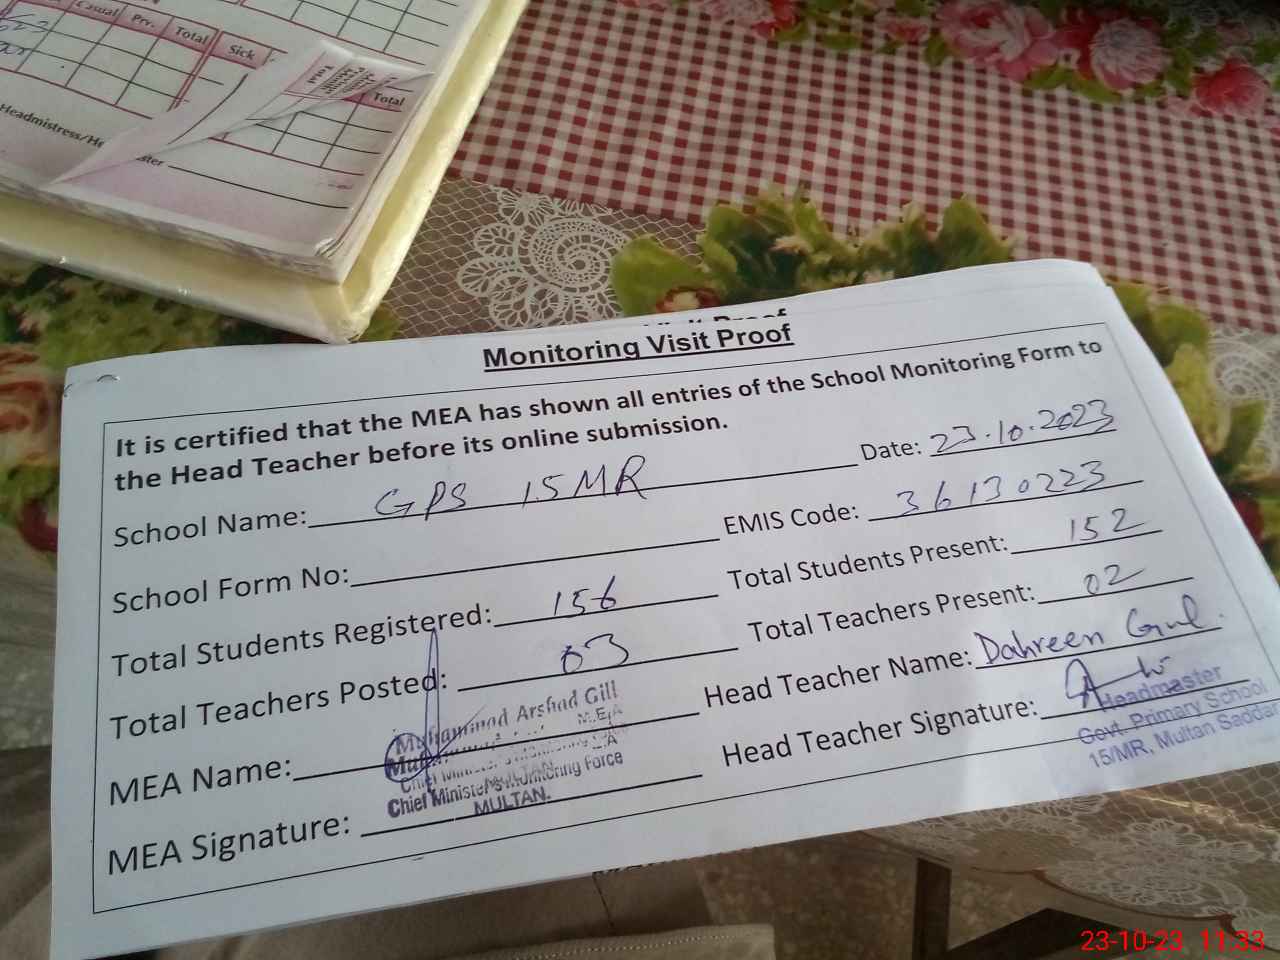 Casual Prv. Total Sick
Total
Total
Headmistress/He
ster
Visit Proof
Monitoring Visit Proof
It is certified that the MEA has shown all entries of the School Monitoring Form to
the Head Teacher before its online submission.
Date: 23.10.2023
School Name: GPS 15 MR
EMIS Code: 36130223
School Form No:
Total Students Present: 152
Total Students Registered: 156
Total Teachers Present: 02
Total Teachers Posted: 03
Head Teacher Name: Dahreen Gul.
MEA Name: Muhammad Arshad Gill
M.E.A
Head Teacher Signature:
Headmaster
Govt. Primary School
15/MR, Multan Saddar
MEA Signature:
Chief Minister's Monitoring Force
MULTAN.
23-10-23 11:33